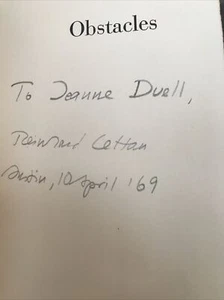 Obstacles
To Jeanne Duell,
Reinhard Lettau
Austin, 10 April '69